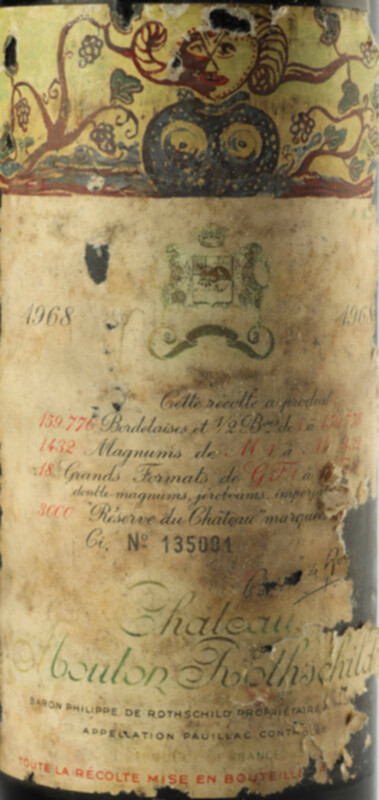 1968 1968
Cette récolte a produit
159.776 Bordelaises et 1/2 Bses de 1 à
1432 Magnums de M 1 à M
18 Grands Formats de GF 1 à
double-magnums, jeroboams, imperia
3000 "Réserve du Château" marqué
Ci, Nº 135091
Chateau
Mouton Rothschild
BARON PHILIPPE DE ROTHSCHILD PROPRIÉTAIRE A
APPELLATION PAUILLAC CONTRÔLÉE
FRANCE
TOUTE LA RÉCOLTE MISE EN BOUTEILLE